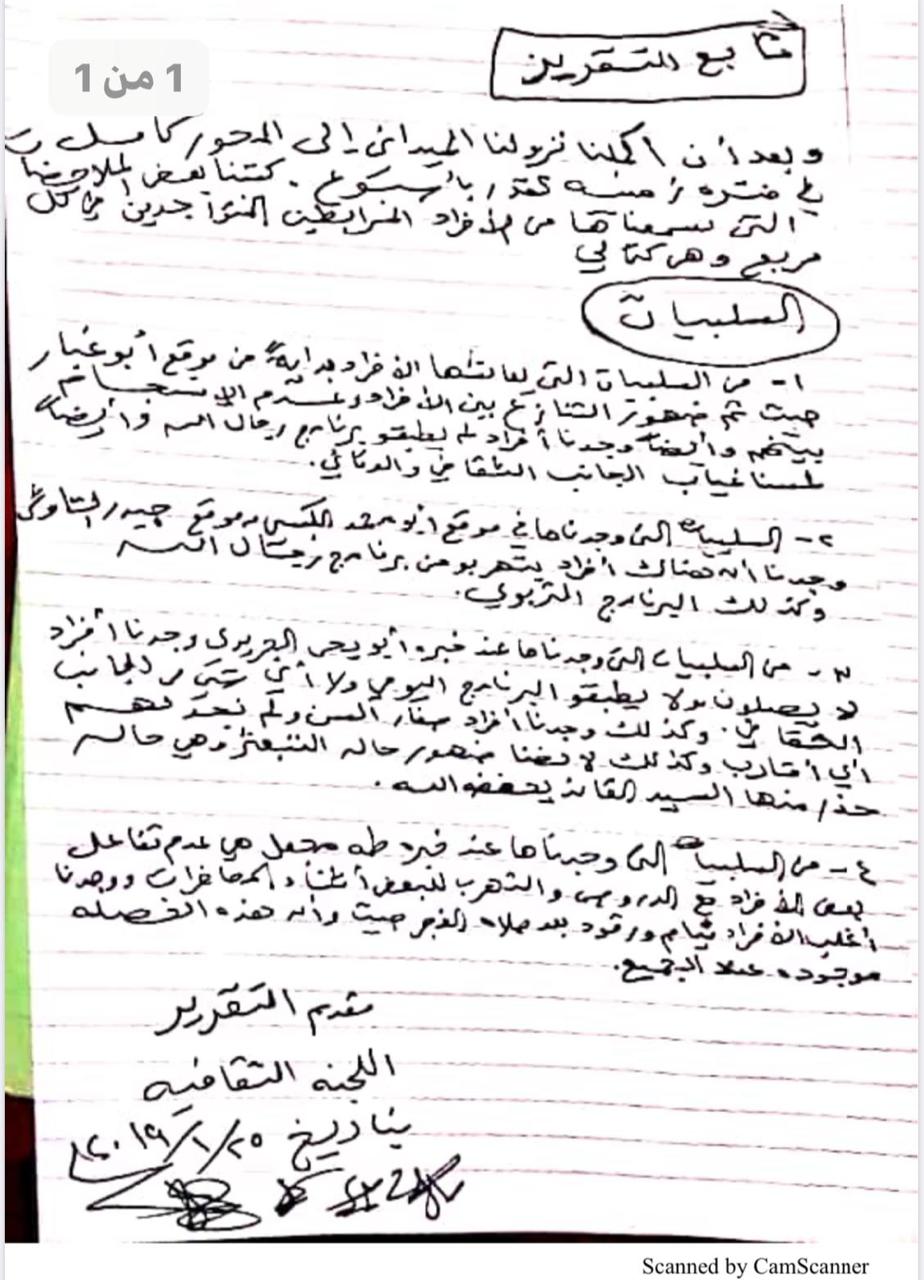 1 من 1
تابع التقرير
وبعد أن اكملنا نزولنا الميداني إلى المحور كامل
في فتره زمنيه تقدر بأسبوع . كتبنا بعض الملاحظات
التي سمعناها من الأفراد المرابطين المتواجدين في كل
مربع وهي كتالي
السلبيات
١- من السلبيات التي يعانيها الافراد بداية من موقع أبو غبار
حيث تم ضهور التنازع بين الأفراد وعدم الإنسجام
بينهم وأيضاً وجدنا أفراد لم يطبقو برنامج رجال الله وأيضاً
لمسنا غياب الجانب الثقافي والدفاعي.
٢- السلبيات التي وجدناها في موقع ابو محمد الكبسي وموقع حيدر
وجدنا أنه هناك أفراد يتهربو من برنامج رجال الله
وكذلك البرنامج التربوي.
٣- من السلبيات التي وجدناها عند أبو يحي وجدنا أفراد
لا يصلون ولا يطبقو البرنامج اليومي ولا أي شي من الجانب
الثقافي. وكذلك وجدنا أفراد صغار السن ولم نجد لهم
أي أقارب وكذلك لاحضنا ضهور حاله التبعثر وهي حاله
حذر منها السيد القائد يحفضه الله.
٤- من السلبيات التي وجدناها عند طه هي عدم تفاعل
بعض الأفراد مع الدروس والتهرب للبعض أثناء المحاضرات ووجدنا
أغلب الافراد نيام ورقود بعد صلاه الفجر حيث وأنه هذه الخصله
موجوده عند الجميع.
مقدم التقرير
اللجنه الثقافيه
بتاريخ ٢٥/١/٢٠١٩م
Scanned by CamScanner